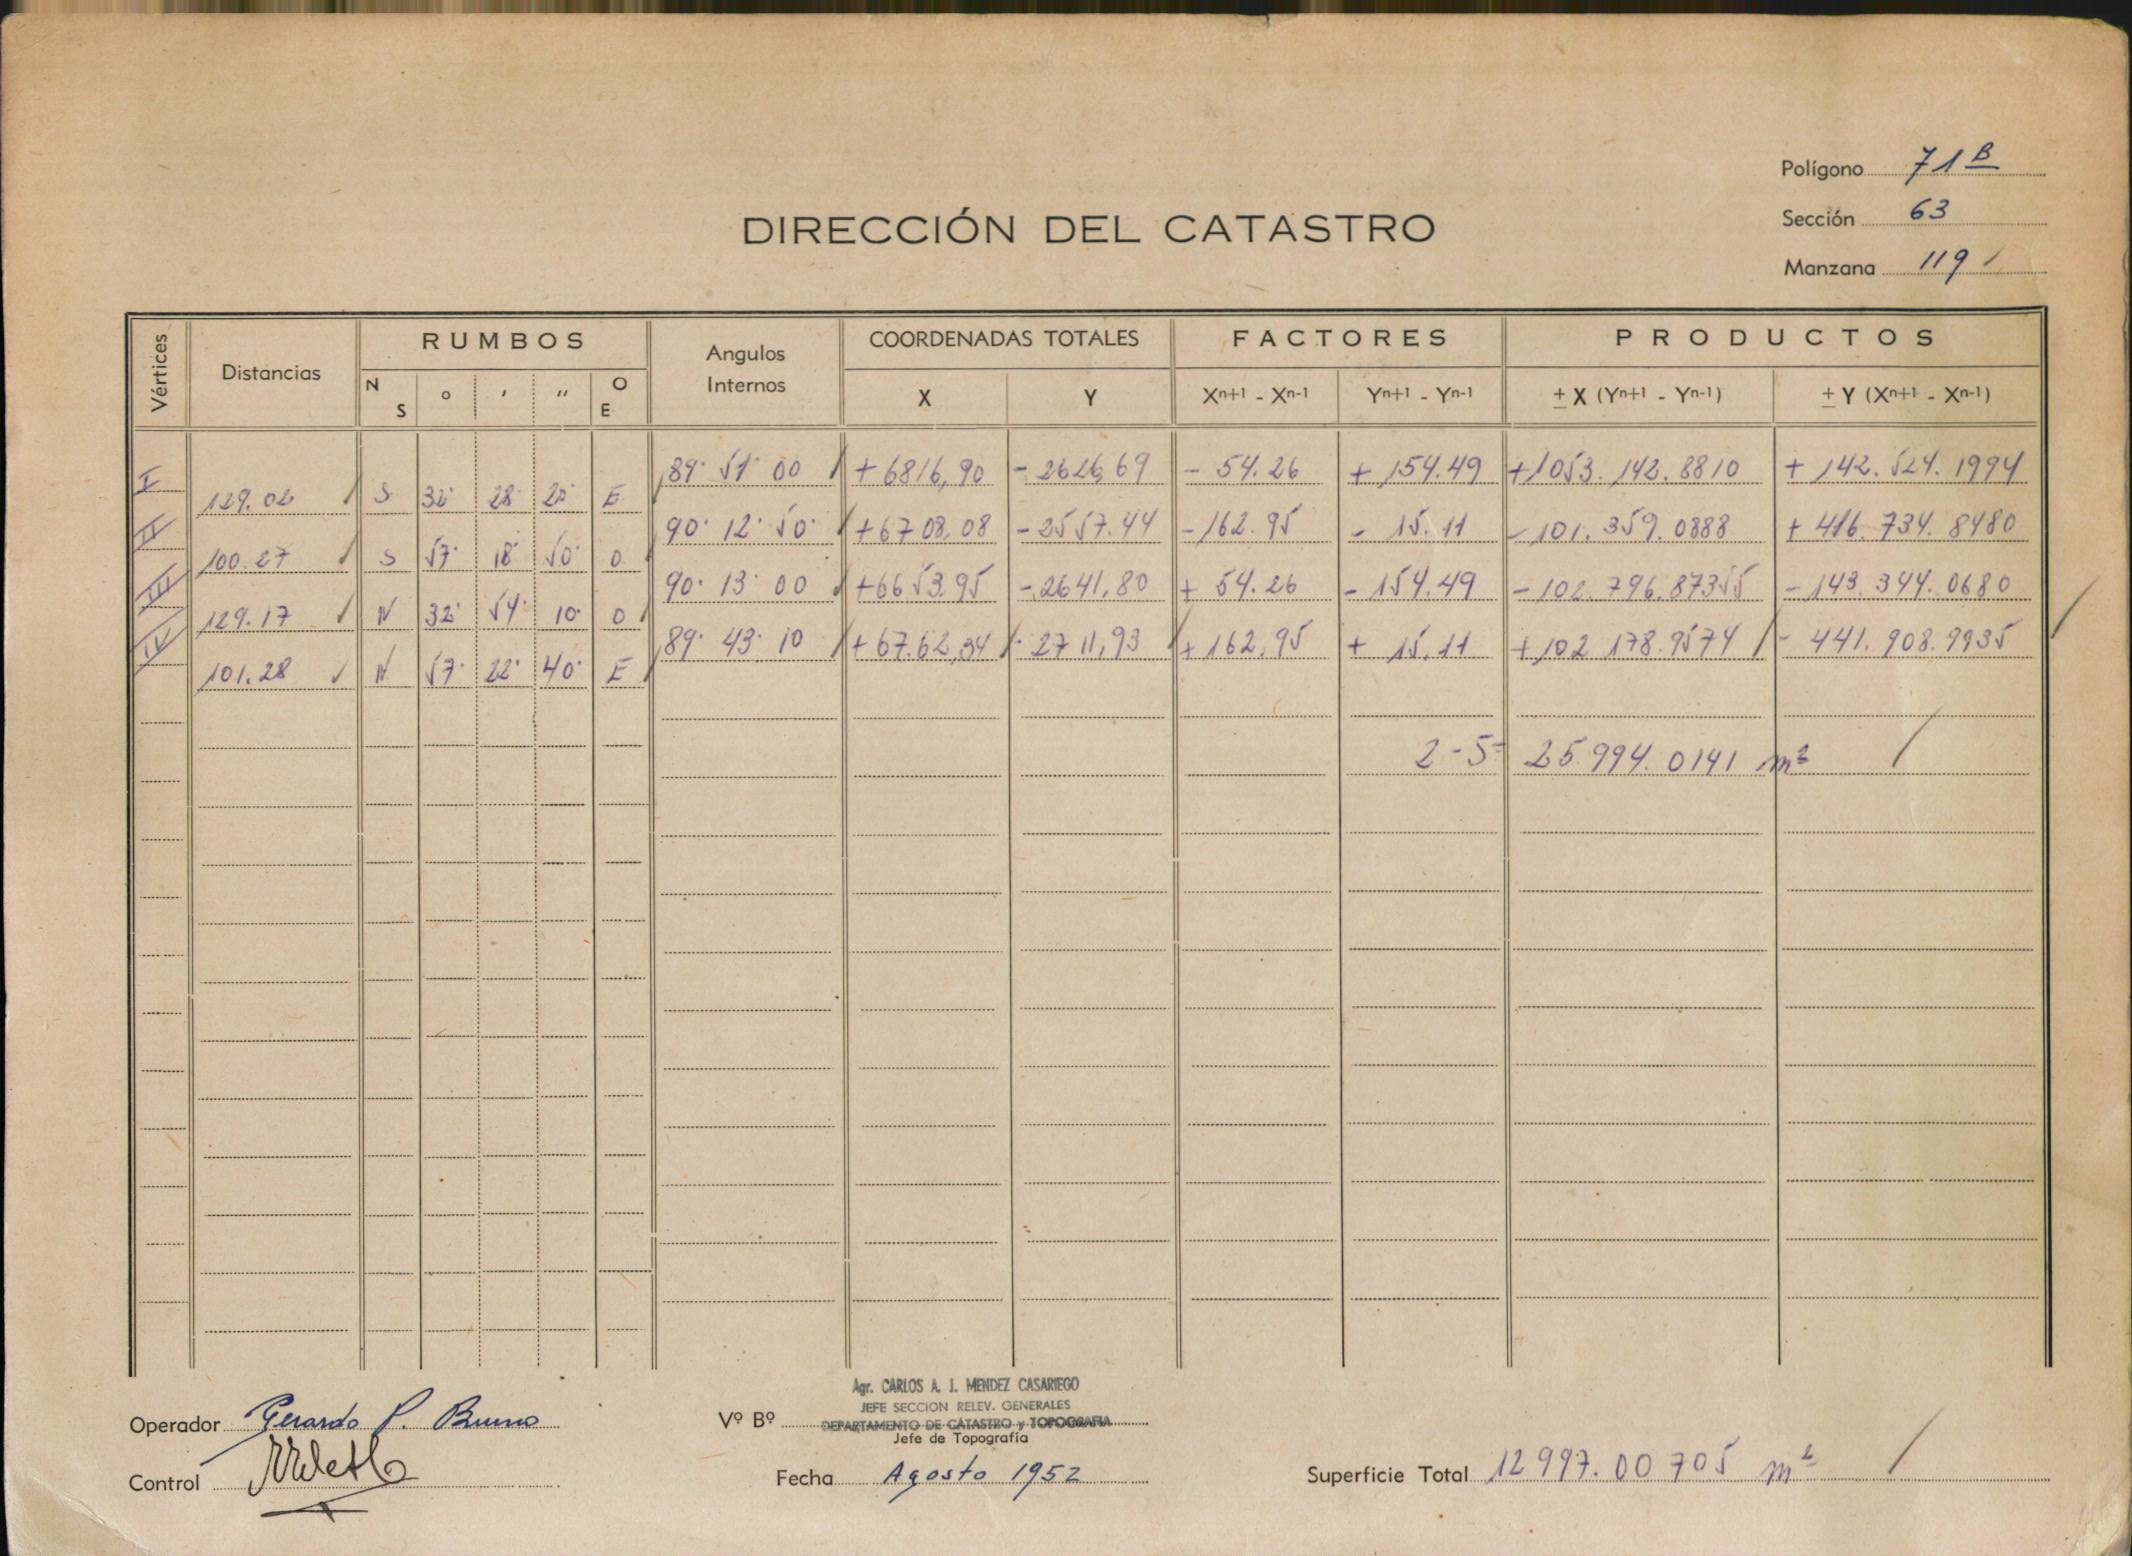 Polígono 71 B
Sección 63
Manzana 119
DIRECCIÓN DEL CATASTRO
Vértices Distancias RUMBOS Angulos Internos COORDENADAS TOTALES FACTORES PRODUCTOS
N S ° ' " O E X Y Xn+1 - Xn-1 Yn+1 - Yn-1 ± X (Yn+1 - Yn-1) ± Y (Xn+1 - Xn-1)
I 89° 51' 00 +6816,90 -2626,69 - 54.26 + 154.49 +1053.142.8810 + 142.524.1994
129.02 S 32° 28' 20" E
II 90° 12' 50" +6708,08 -2557.44 -162.95 - 15.11 -101.359.0888 + 416.734.8480
100.27 S 57° 18' 50" O
III 90° 13' 00 +6653.95 -2641,80 + 54.26 - 154.49 -102.796.87355 - 143.344.0680
129.17 N 32° 54' 10" O
IV 89° 43' 10 +6762,34 - 2711,93 +162,95 + 15.11 +102 178.9574 - 441.908.9935
101.28 N 57° 22' 40" E
2-S= 25.994.0141 m²
Agr. CARLOS A. J. MENDEZ CASARIEGO
JEFE SECCION RELEV. GENERALES
Operador Gerardo P. Bruno Vº Bº DEPARTAMENTO DE CATASTRO y TOPOGRAFIA
Jefe de Topografía
Control Fecha Agosto 1952 Superficie Total 12997.00705 m²